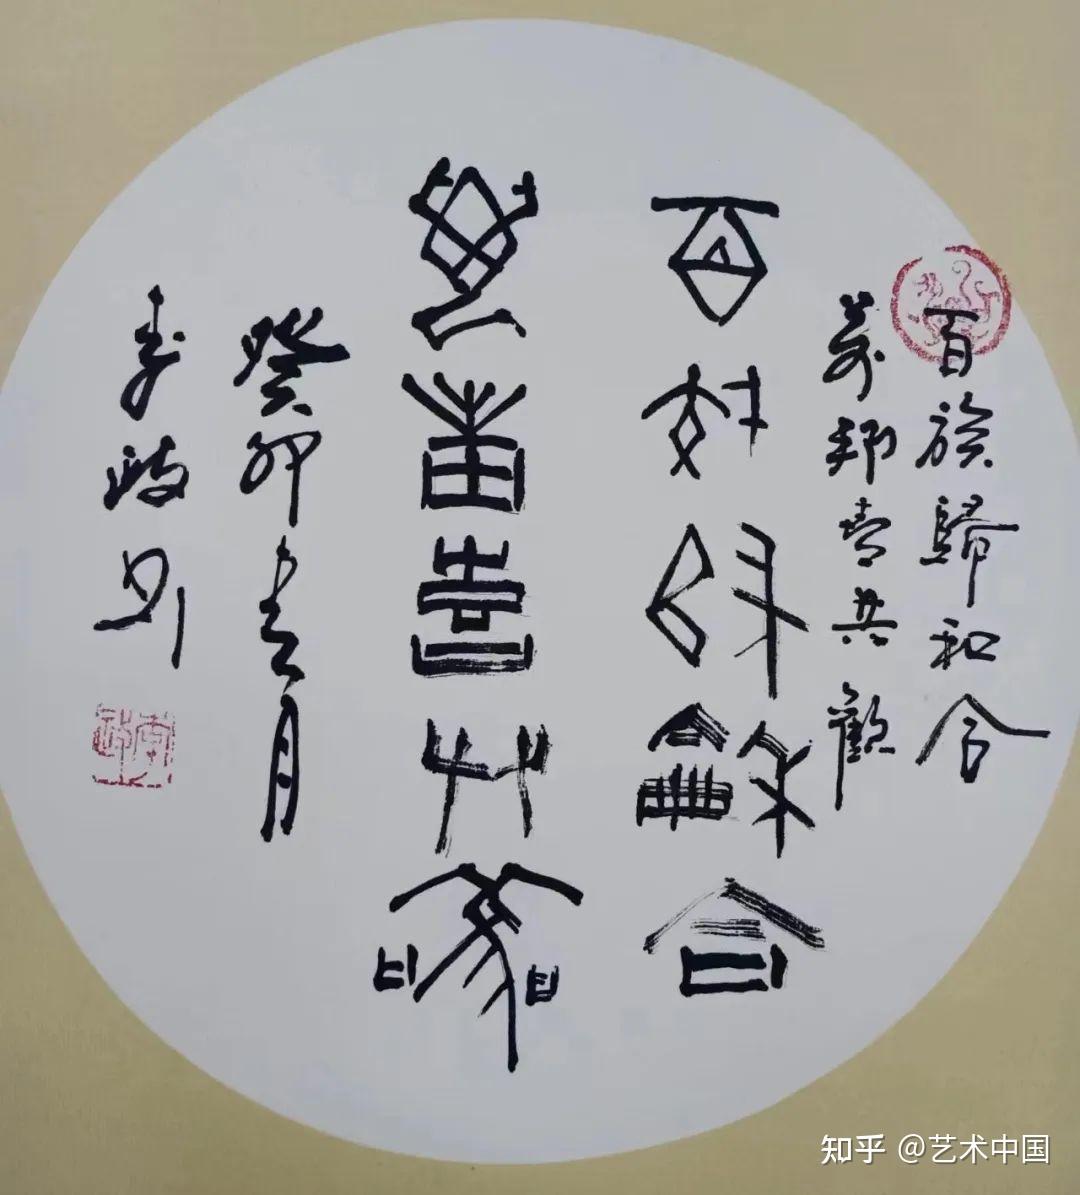 百族歸和合
萬邦喜共歡
百族歸龢合
萬邦喜共雚
癸卯玄月
知乎 @艺术中国